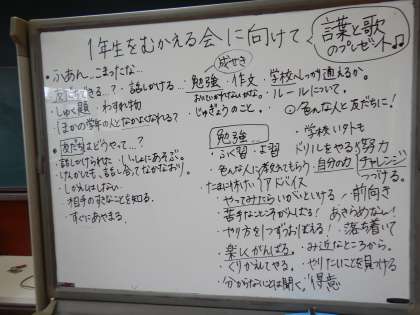 1年生をむかえる会に向けて
言葉と歌のプレゼント♫
・ふあん…こまったな…
友だちできる…？・話しかける…
・しゅく題・わすれ物
・ほかの学年の人となかよくなれる？
成せき
・勉強・作文・学校へしっかり通えるか。
・ルールについて。
・じゅぎょうのこと。
・色んな人と友だちに！
・友だちはどうやって…？
・話しかけられた・いっしょにあそぶ。
・けんかしても、話し合ってなかなおり。
・しかえしはしない。
・相手のすきなことを知る。
・すぐにあやまる。
勉強
・ふく習・よ習
・色んな人に教えてもらう・自分の力
アドバイス
・学校いがいも
ドリルをやる・努力
チャレンジ
つづける。
・やってみたらいがいといける・前向き
・苦手なところをがんばる！・あきらめない！
・やり方を1つずつおぼえる！・落ち着いて
・楽しくがんばる。・み近なところから。
・くりかえしてやる。・やりたいことを見つける
・分からないことは聞く。・得意